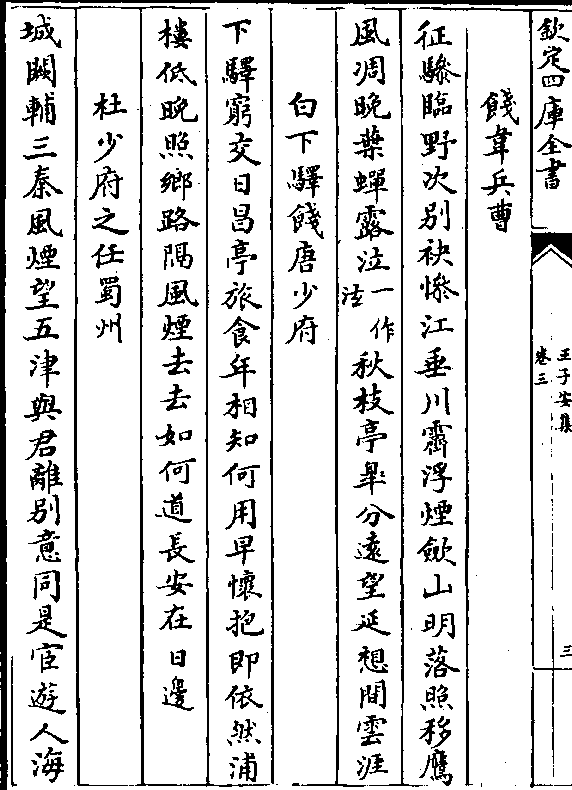 欽定四庫全書
王子安集
卷三
三
餞韋兵曹
征驂臨野次别袂慘江垂川霽浮煙歛山明落照移鷹
風凋晚葉蟬露泣一作泫秋枝亭臯分遠望延想間雲涯
白下驛餞唐少府
下驛窮交日昌亭旅食年相知何用早懷抱即依然浦
樓低晚照鄉路隔風煙去去如何道長安在日邊
杜少府之任蜀州
城闕輔三秦風煙望五津與君離别意同是宦遊人海